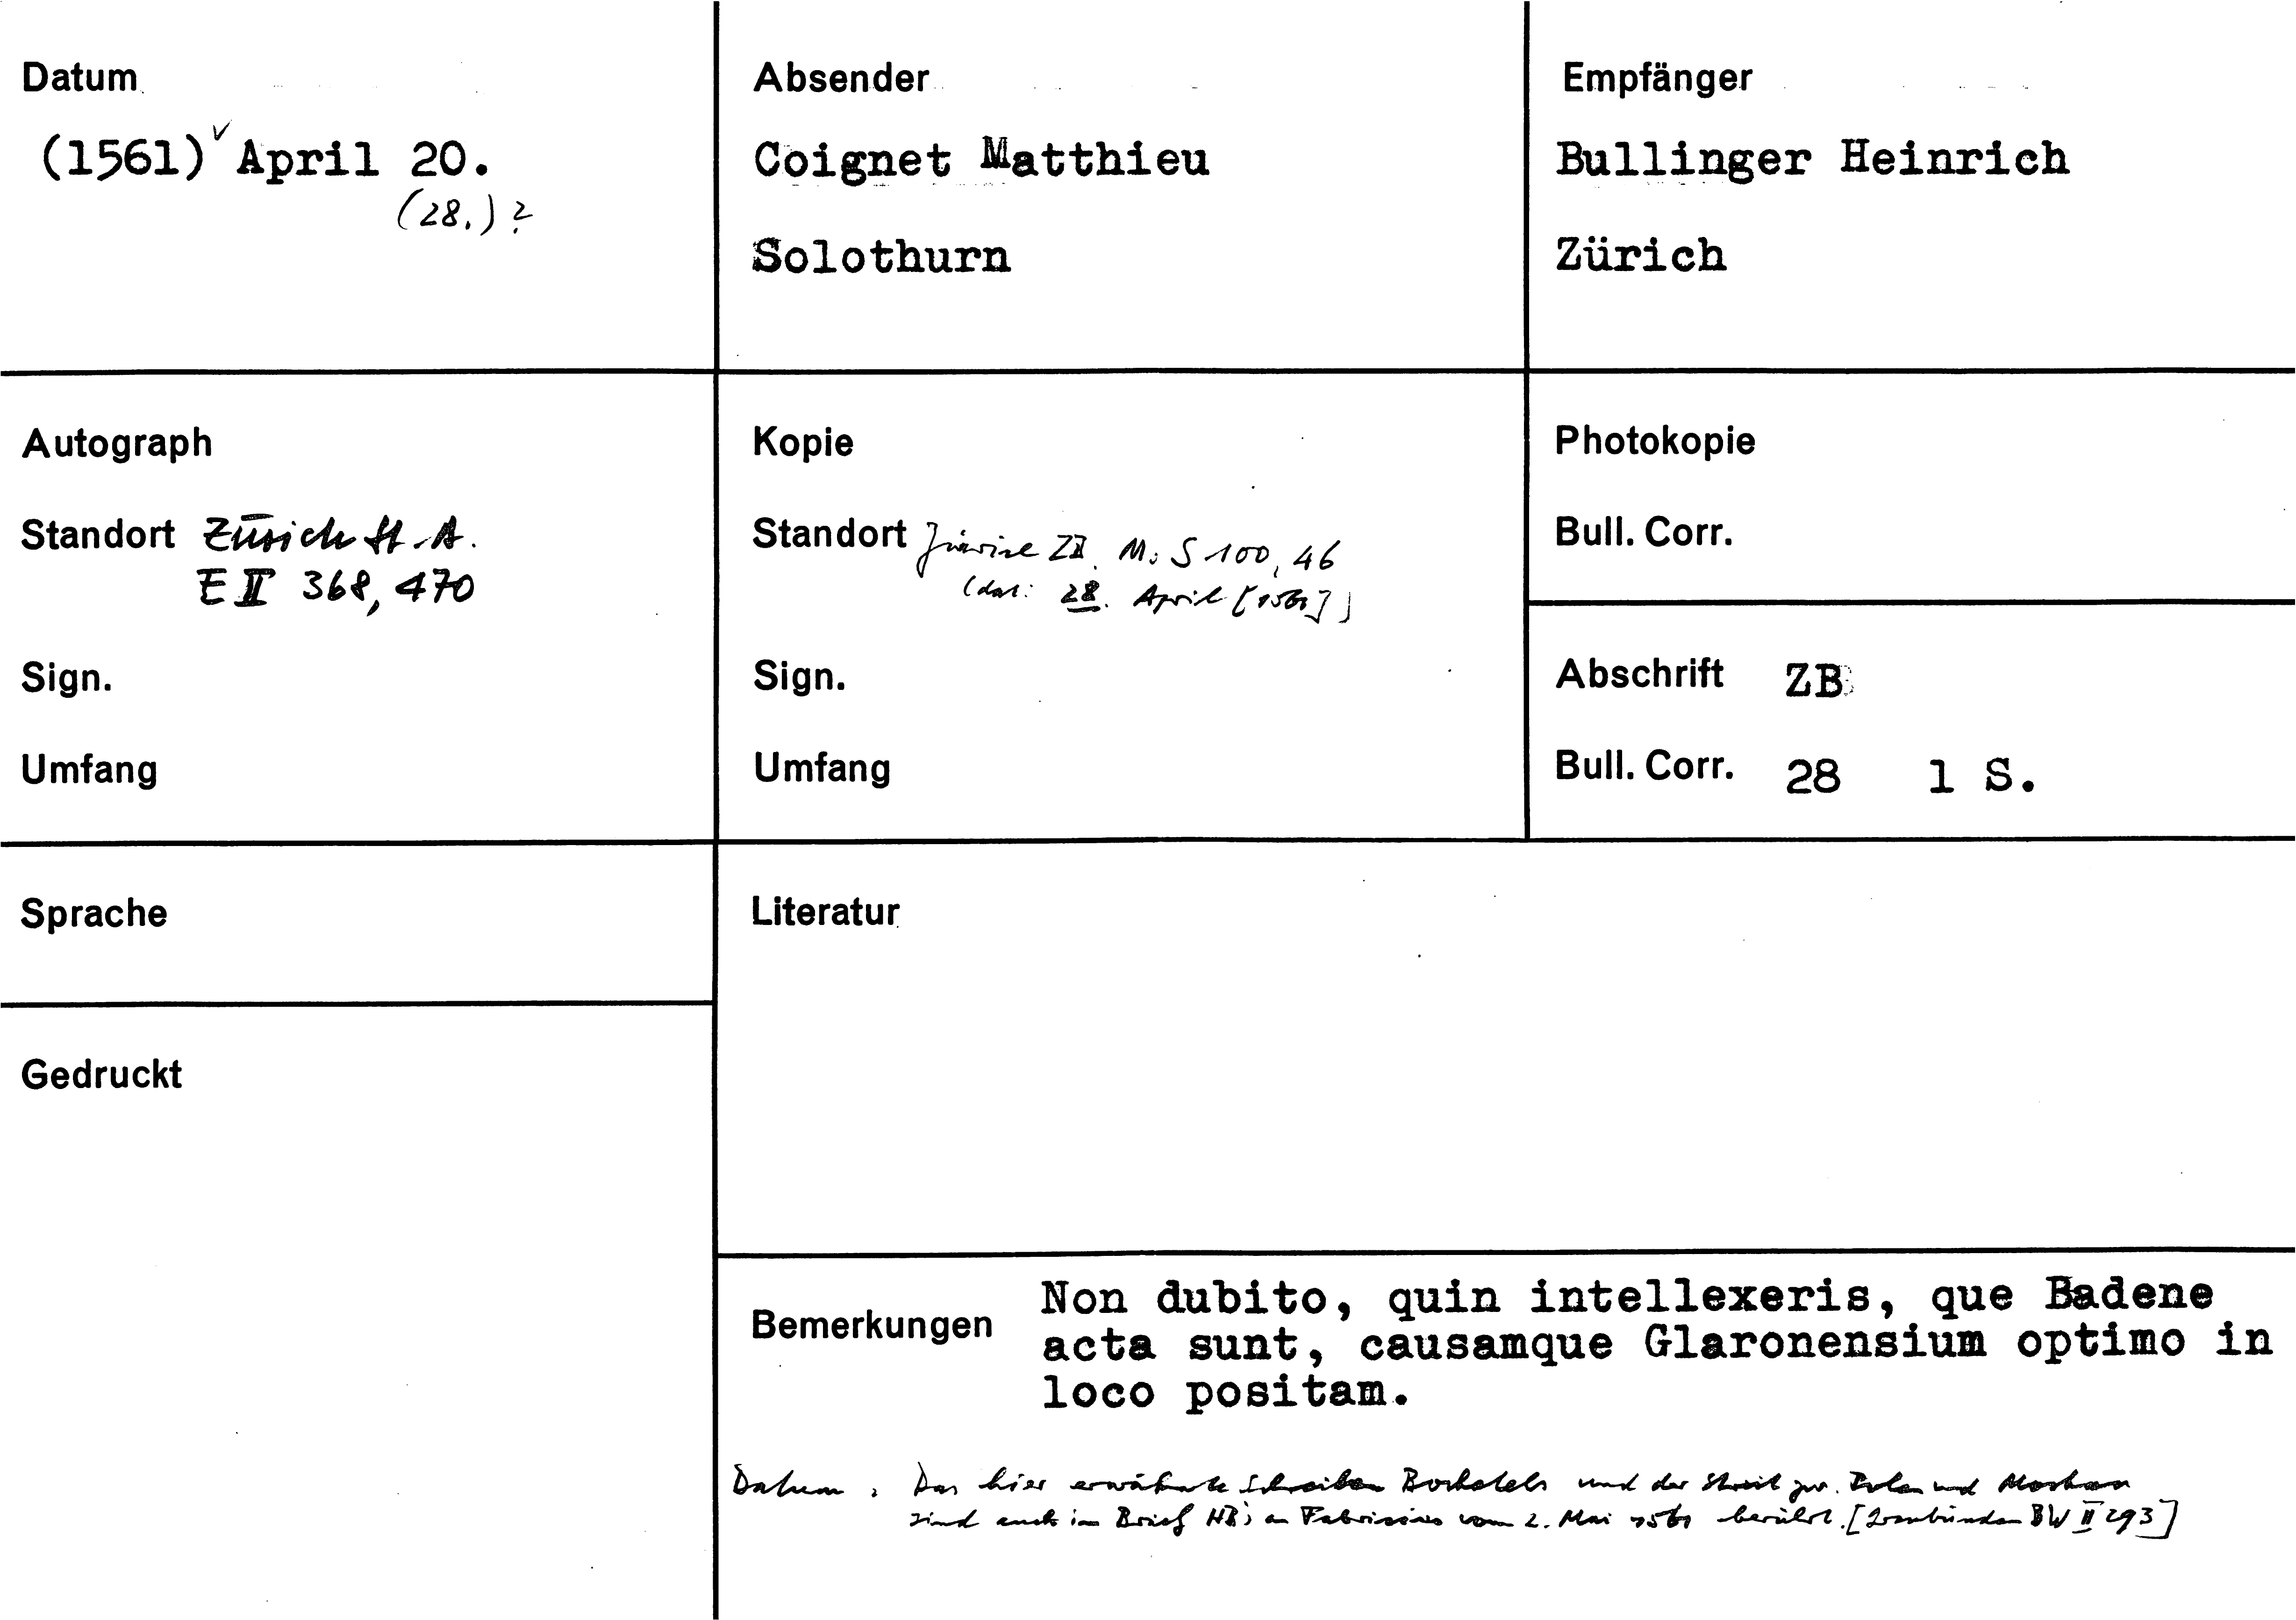 Datum
(1561) April 20.
(28.)?
Absender
Coignet Matthieu
Solothurn
Empfänger
Bullinger Heinrich
Zürich
Autograph
Standort Zürich St.A.
E II 368, 470
Sign.
Umfang
Kopie
Standort Zürich ZB. Ms S 100, 46
(dat: 28. April [1561])
Sign.
Umfang
Photokopie
Bull. Corr.
Abschrift ZB
Bull. Corr. 28 1 S.
Sprache
Gedruckt
Literatur
Bemerkungen Non dubito, quin intellexeris, que Badene
acta sunt, causamque Glaronensium optimo in
loco positam.
Datum: Das hier erwähnte Schreiben Bochetels und der Streit zw. Polen und Moskau
sind auch im Brief HB's an Fabricius vom 2. Mai 1561 berührt. [Graubünden BW II 293]